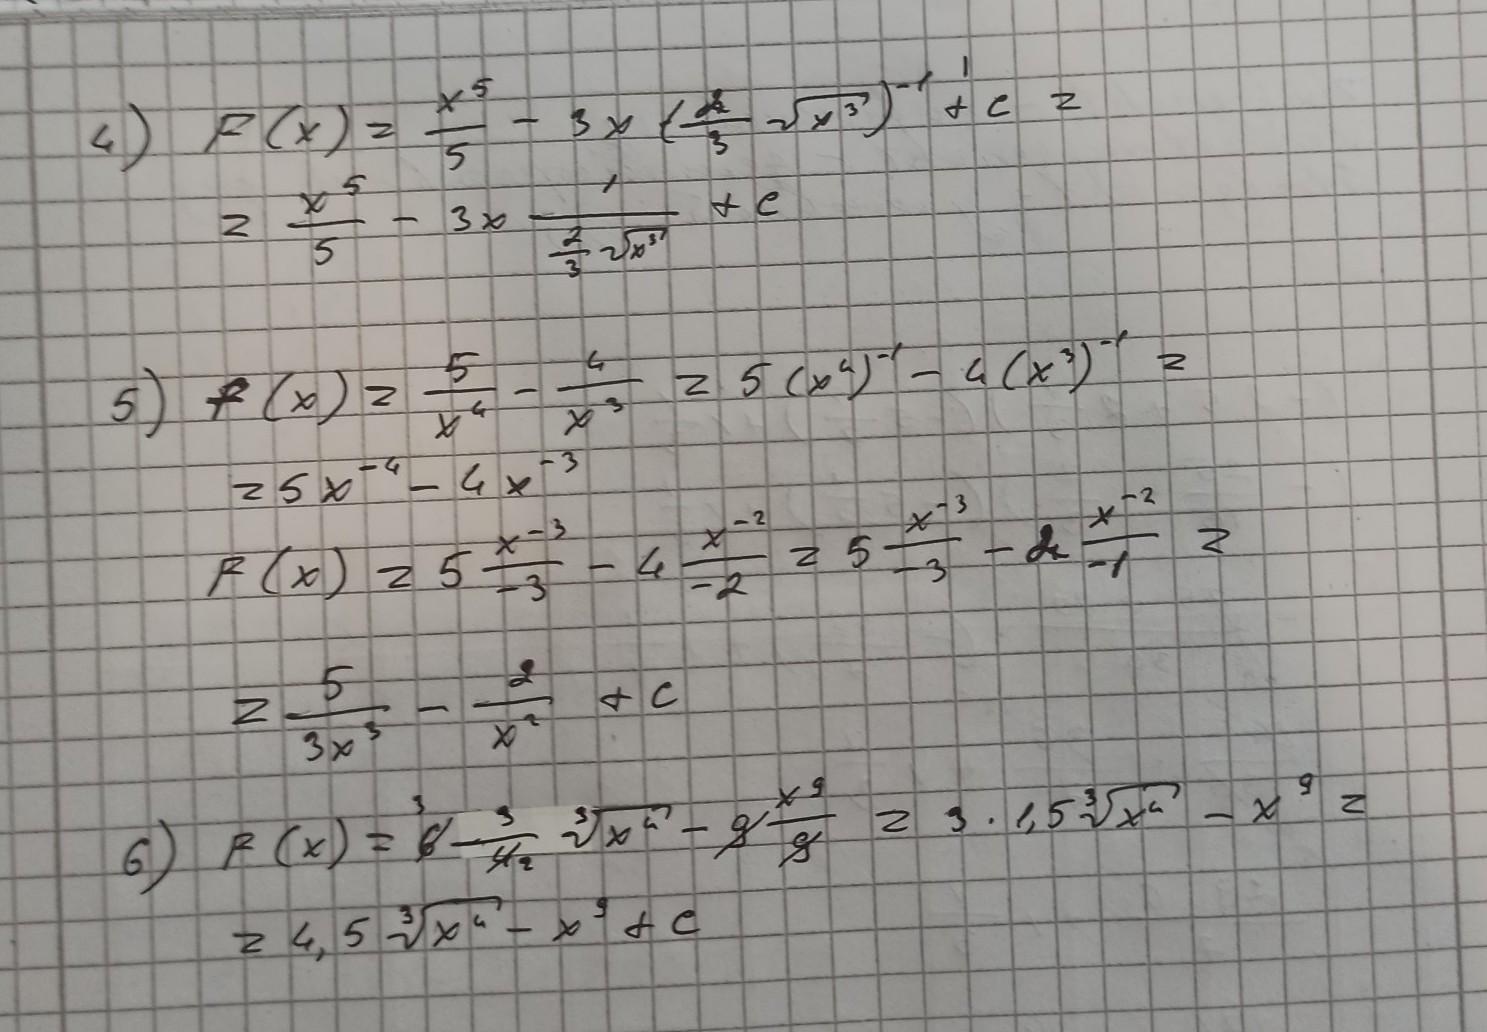 4) F(x) = x⁵/5 - 3x (2/3 √x³)⁻¹ + c =
= x⁵/5 - 3x 1/(2/3 √x³) + c
5) f(x) = 5/x⁴ - 4/x³ = 5(x⁴)⁻¹ - 4(x³)⁻¹ =
= 5x⁻⁴ - 4x⁻³
F(x) = 5 x⁻³/-3 - 4 x⁻²/-2 = 5 x⁻³/-3 - 2 x⁻²/-1 =
= 5/3x³ - 2/x² + c
6) F(x) = 6 3/4 ∛x⁴ - 9 x⁹/9 = 3 · 1,5 ∛x⁴ - x⁹ =
= 4,5 ∛x⁴ - x⁹ + c